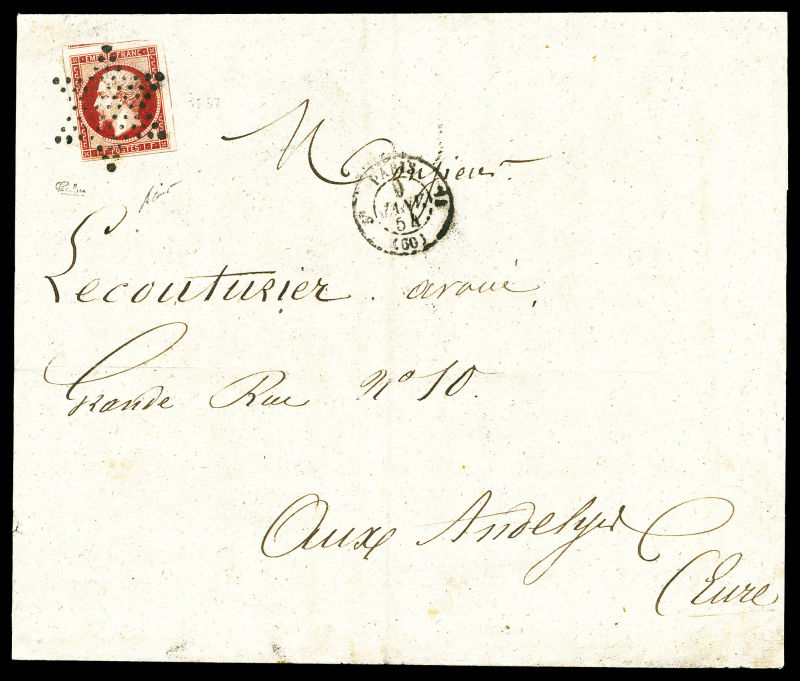 EMPIRE FRANC
POSTES
Monsieur
PARIS
JANV.
54
(60)
Lecouturier avoué
Grande Rue N° 10.
Aux Andelys
Eure